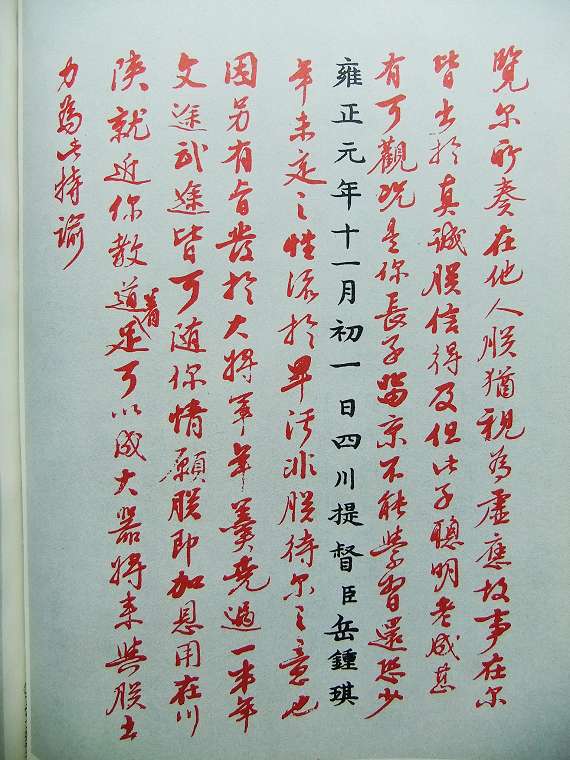 覽尔所奏在他人朕猶視為虛應故事在尔
皆出於真誠朕信得及但此子聰明老成甚
有可觀況是你長子留京不能學習還恐少
雍正元年十一月初一日四川提督臣岳鍾琪
年未定之性流於卑污非朕待尔之意也
因另有旨發於大將軍年羹堯過一半年
文途武途皆可随你情願朕即加恩用在川
陝就近你教道着足可以成大器將來與朕出
力為此特諭